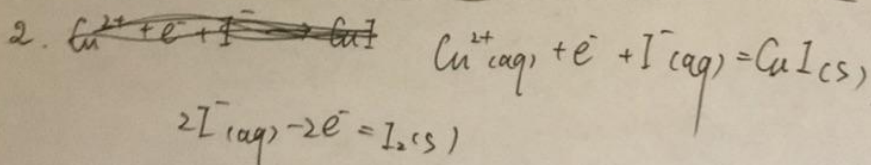 2. Cu²⁺ + e⁻ + I⁻ → CuI Cu²⁺(aq) + e⁻ + I⁻(aq) = CuI(s)
2I⁻(aq) - 2e⁻ = I₂(s)